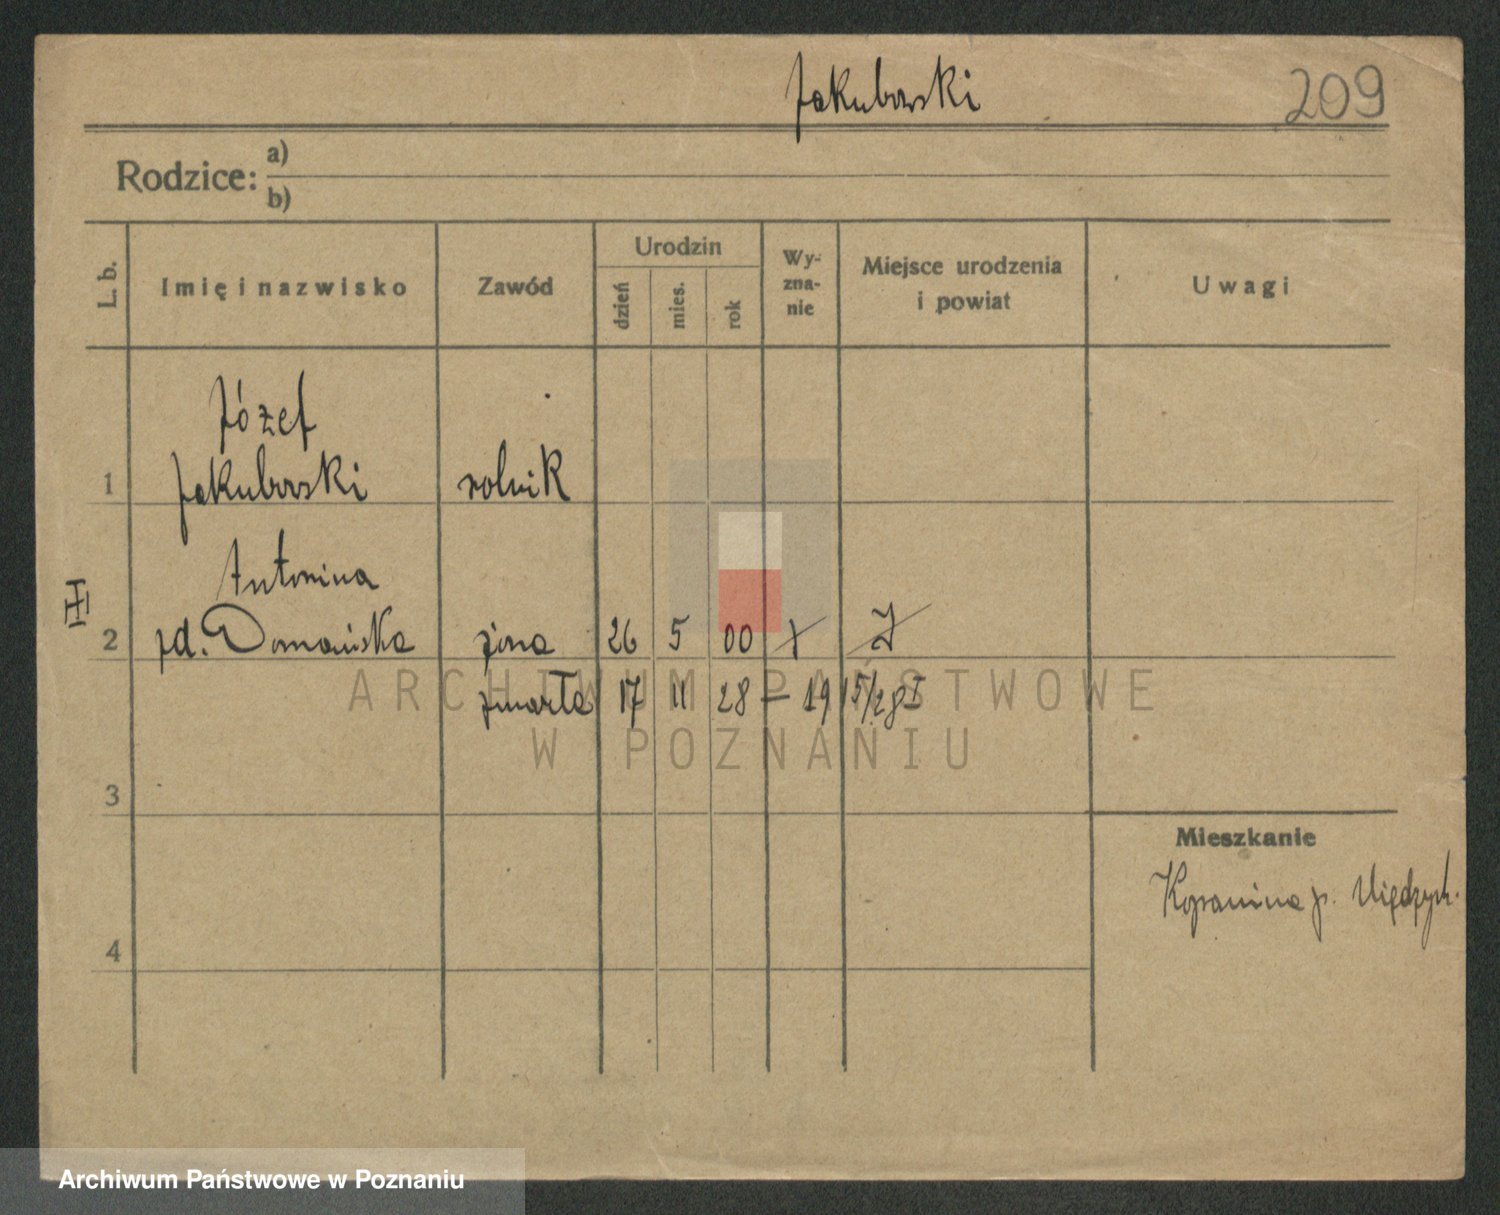 Jakubowski
209
Rodzice: a)
b)
L. b.
Imię i nazwisko
Zawód
Urodzin
dzień
mies.
rok
Wy-
zna-
nie
Miejsce urodzenia
i powiat
Uwagi
Józef
1 Jakubowski rolnik
Antonina
III
2 zd. Domańska żona 26 5 00
zmarła 17 11 28 – 1915/28 I
ARCHIWUM PAŃSTWOWE
W POZNANIU
3
Mieszkanie
Kopanina p. Międzych.
4
Archiwum Państwowe w Poznaniu